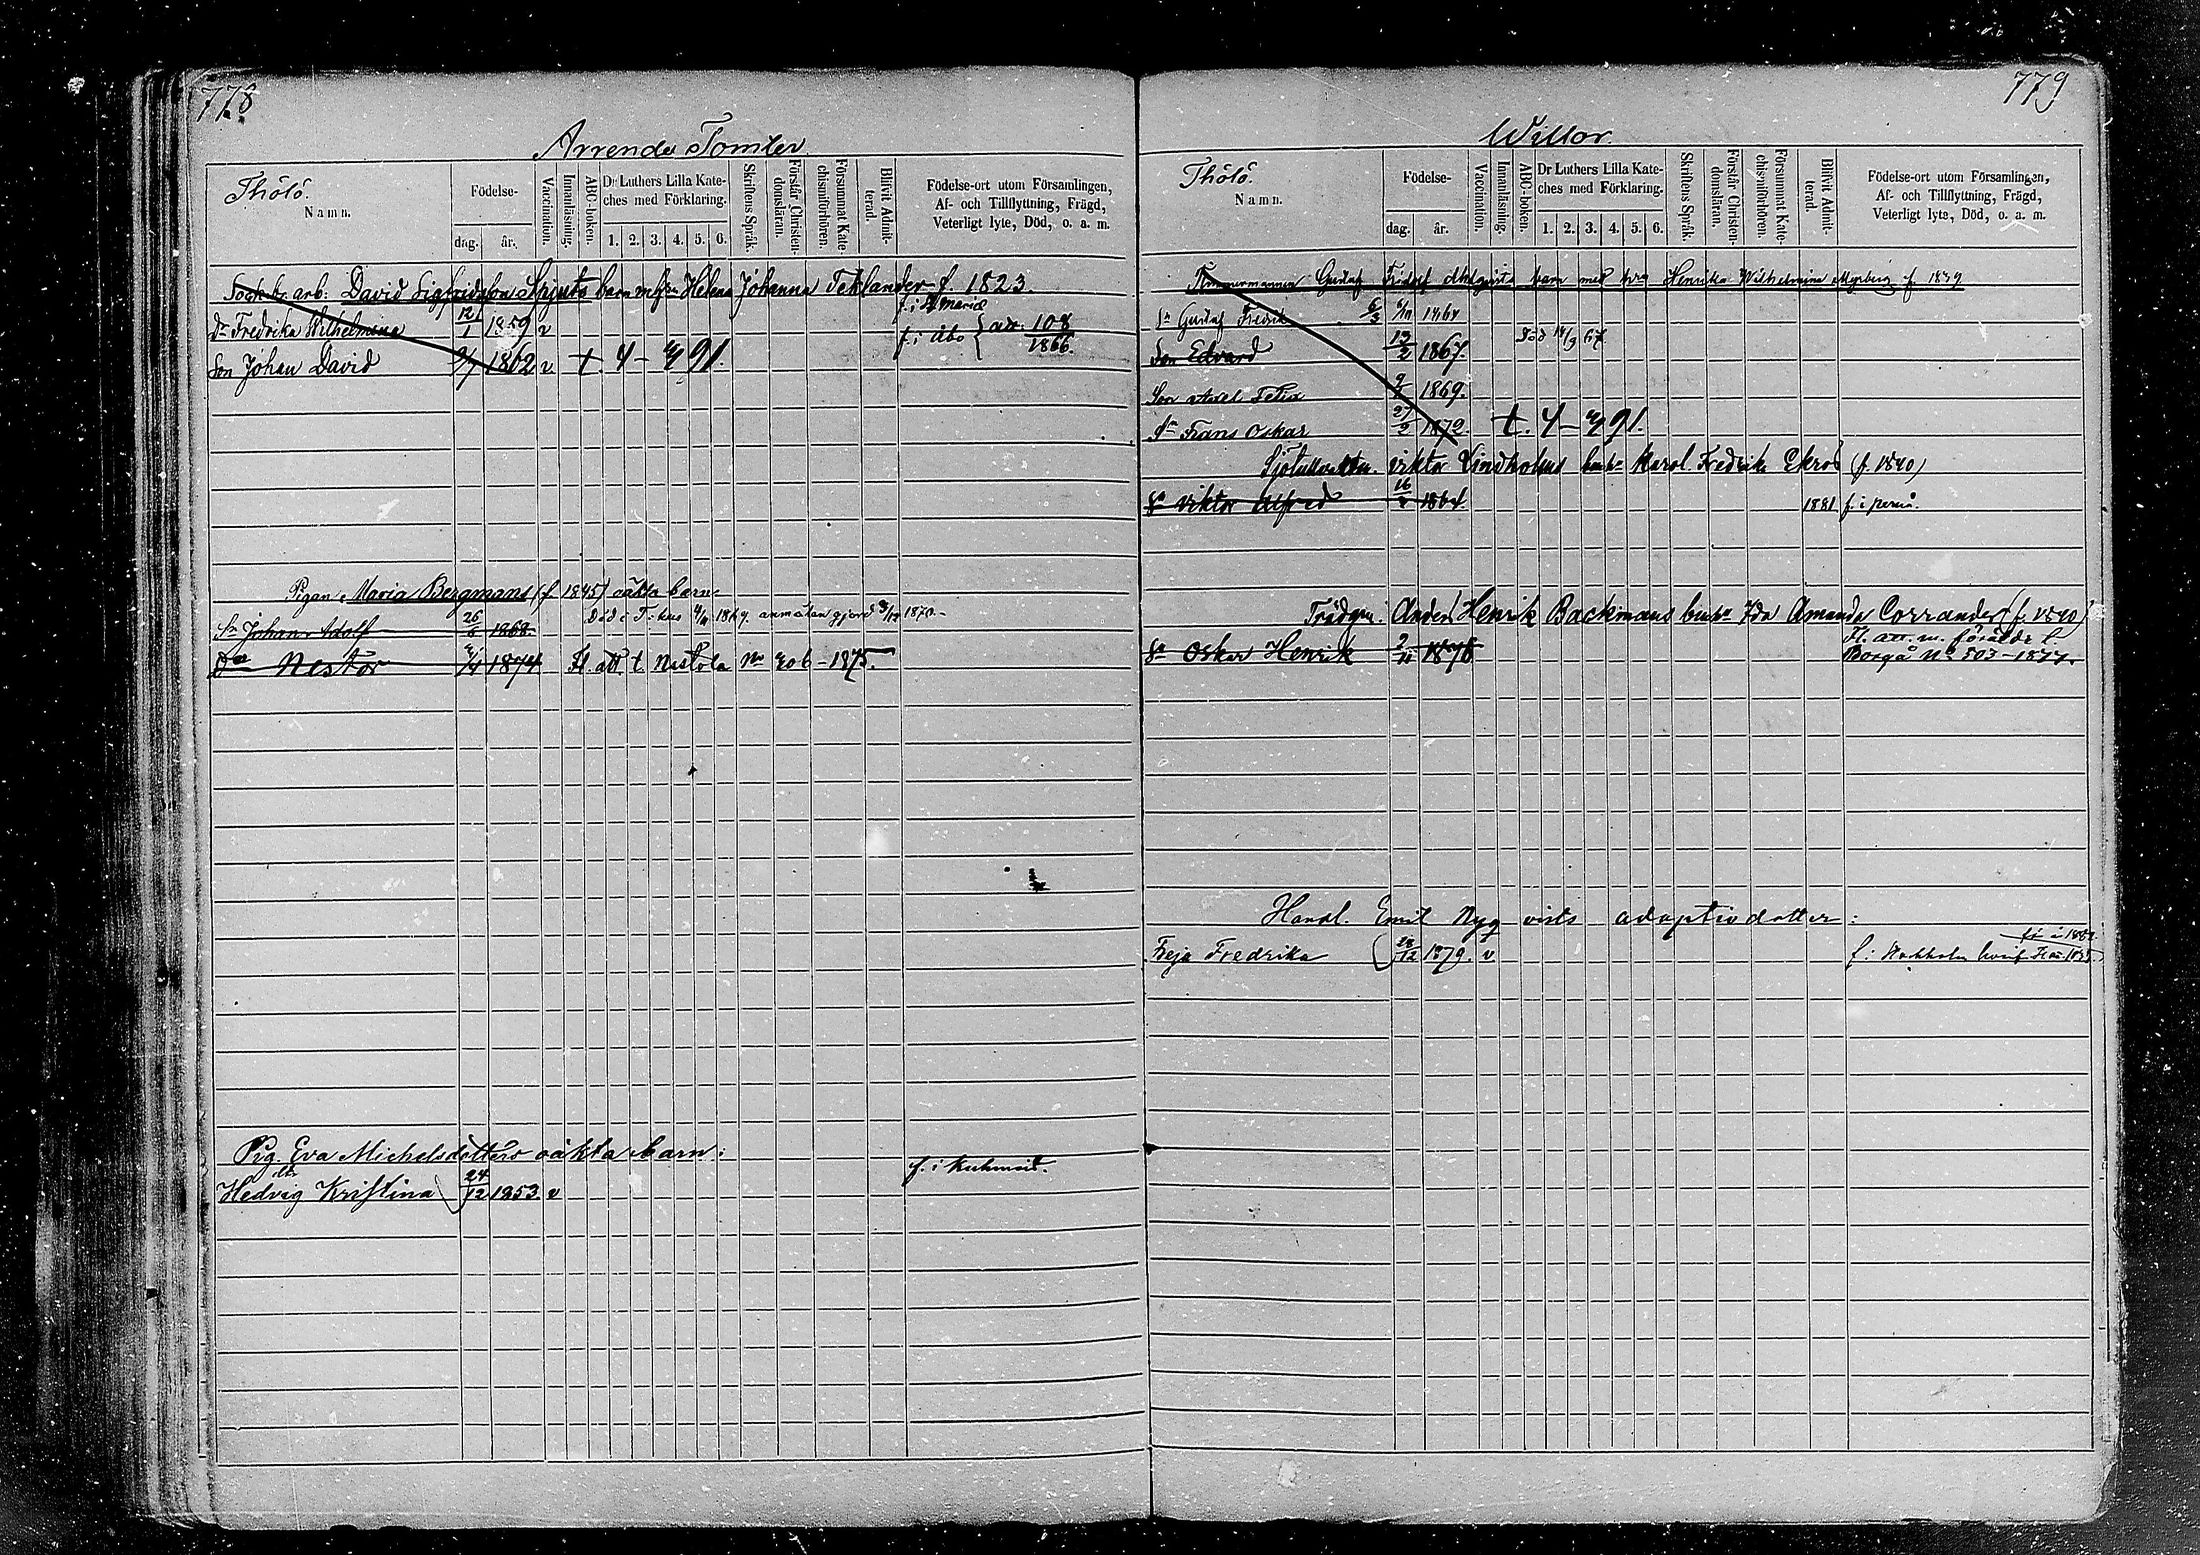 778
Arrende Tomter
Thölö.
Namn.
Födelse-
dag.
år.
Vaccination.
Innanläsning.
ABC-boken.
Dr Luthers Lilla Kate-
ches med Förklaring.
1. 2. 3. 4. 5. 6.
Skriftens Språk.
Förstår Christen-
domsläran.
Försummat Kate-
chismiförhören.
Blifvit Admit-
terad.
Födelse-ort utom Församlingen,
Af- och Tillflyttning, Frägd,
Veterligt lyte, Död, o. a. m.
arb: David Sigfridsson Spjuts barn m hu Helena Johanna Teklander f. 1823
f. i St Mariæ
Dr Fredrika Wilhelmina 12/1 1859 v
f. i Åbo { att. 108/1866.
Son Johan David 9/7 1862 v +. 4 - 91.
Pigan Maria Bergmans (f 1845) oäkta barn
Sn Johan Adolf 26/6 1868. Död i 1869. anmälan gjord 1870.-
Nestor 1874 Fl. att t. Nastola No 206 - 1875.
Pig. Eva Michelsdotters oäkta barn:
dtr
Hedvig Kristina 24/12 1853. v f. i Kuhmois.
779
Willor.
Thölö.
Namn.
Födelse-
dag.
år.
Vaccination.
Innanläsning.
ABC-boken.
Dr Luthers Lilla Kate-
ches med Förklaring.
1. 2. 3. 4. 5. 6.
Skriftens Språk.
Förstår Christen-
domsläran.
Försummat Kate-
chismiförhören.
Blifvit Admit-
terad.
Födelse-ort utom Församlingen,
Af- och Tillflyttning, Frägd,
Veterligt lyte, Död, o. a. m.
Timmermannen Gustaf Fridolf barn med hru Henrika Wilhelmina Myrberg f. 1839
Sn Gustaf Fredrik 1864
Son Edvard 13/2 1867. Död 14/9 67
Son Axel Felix 1869.
Sn Frans Oskar 27/2 1872. +. 4 - 91.
Viktor Lindholms barn Karol. Fredrik. Ekroos (f. 1840)
Sn Viktor Alfred 16 1864. 1881 f. i Pernå.
Trädgm. Anders Henrik Backmans barn Ida Amanda Corrander (f. 1840)
Fl. att. m. föräldr t.
Sn Oskar Henrik 2/11 1876 Borgå No 503 - 1877.
Handl. Emil Nyqvists adoptivdotter:
Freja Fredrika 28/12 1879. v f. i Stockholm